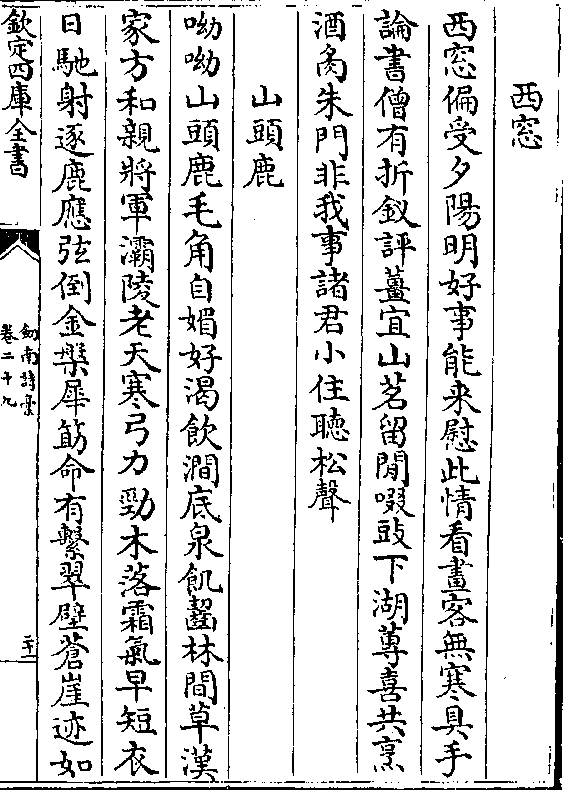 西窓
西窓偏受夕陽明好事能来慰此情看畫客無寒具手
論書僧有折釵評薑宜山茗留閒啜豉下湖蓴喜共烹
酒臠朱門非我事諸君小住聴松聲
山頭鹿
呦呦山頭鹿毛角自媚好渇飲澗底泉飢齧林間草漢
家方和親將軍灞陵老天寒弓力勁木落霜氣早短衣
日馳射逐鹿應弦倒金槃犀筯命有繫翠壁蒼崖迹如
欽定四庫全書
劒南詩槀
卷二十九
二十一